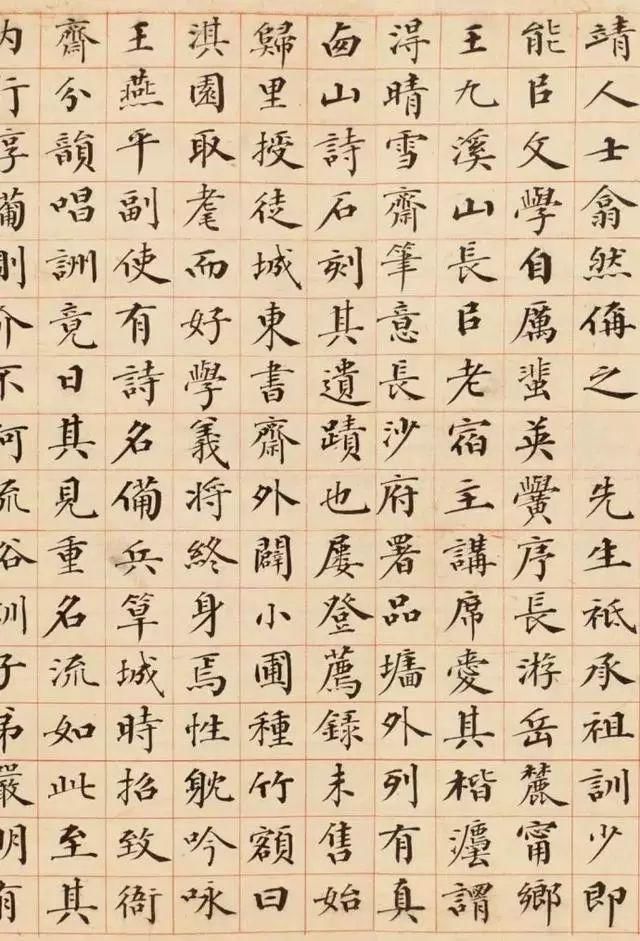 靖人士翕然偁之　先生祇承祖訓少即
能㠯文學自厲蜚英黌序長游岳麓甯鄉
王九溪山長㠯老宿主講席愛其楷灋謂
淂晴雪齋筆意長沙府署品墻外列有真
卥山詩石刻其遺蹟也屢登薦錄未售始
歸里授徒城東書齋外闢小圃種竹額曰
淇園取耄而好學義將終身焉性躭吟咏
王燕平副使有詩名備兵筸城時招致衙
齋分韻唱詶竟日其見重名流如此至其
内行介不流俗訓子弟嚴明有